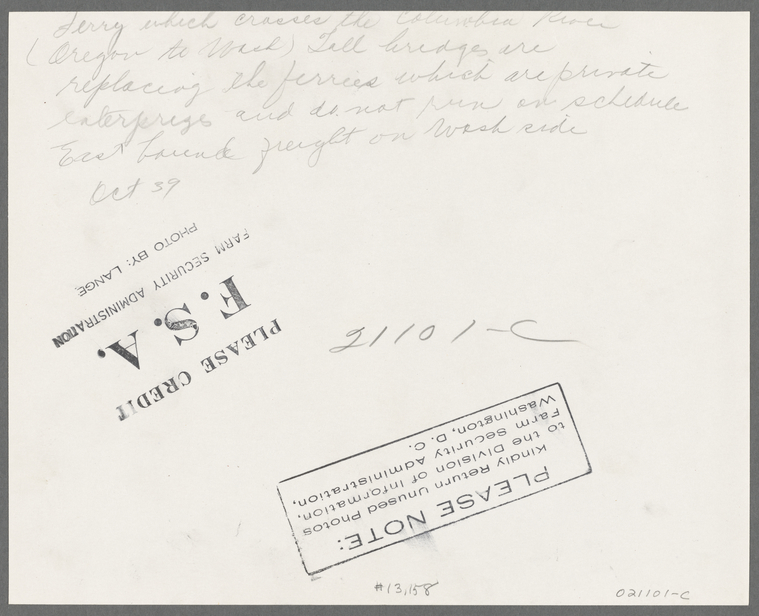 Ferry which crosses the Columbia River
(Oregon to Wash) Toll bridges are
replacing the ferries which are private
enterprizes and do not run on schedule
East bound freight on Wash side
Oct 39
PLEASE CREDIT
F.S.A.
FARM SECURITY ADMINISTRATION
PHOTO BY: LANGE
21101-C
PLEASE NOTE:
Kindly Return Unused Photos
to the Division of Information,
Farm Security Administration,
Washington, D. C.
#13,158
021101-C